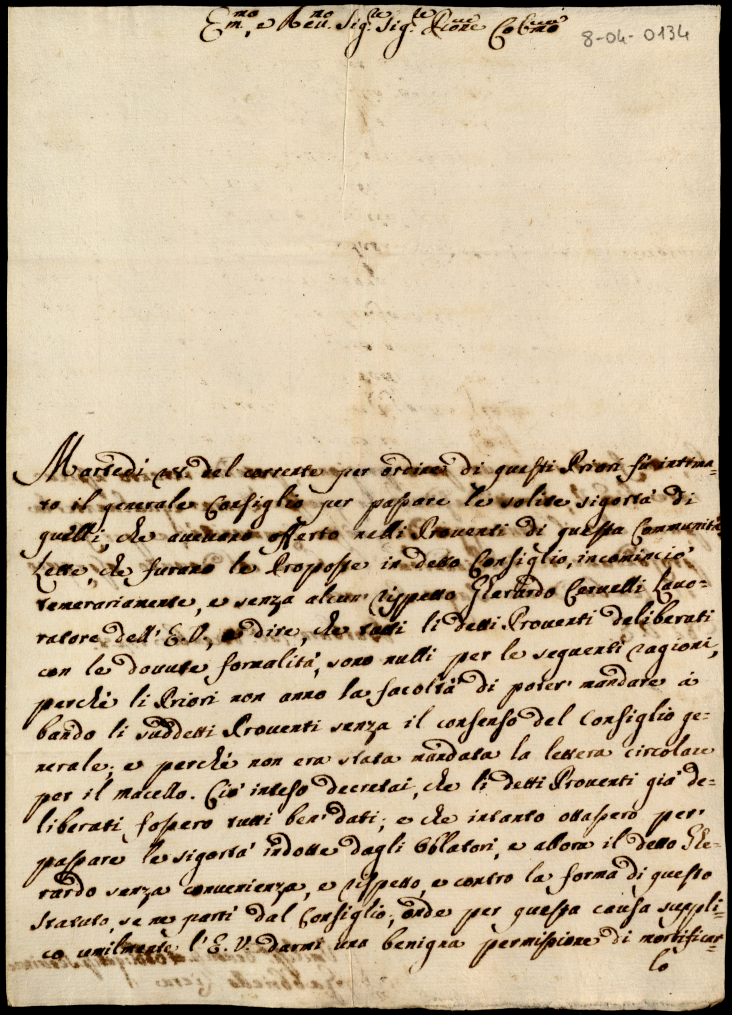 Em.mo, e Reu.mo Sig.re Sig.re P.rone Col.mo
8-04-0134
Martedì del corrente per ordine di questi Priori fù intima=
to il generale Consiglio per passare le solite sigortà di
quelli, che aueuano offerto nelli Prouenti di questa Communità
Lette, che furano le Proposte in detto Consiglio, incominciò
temerariamente, e senza alcun' rispetto Gherardo Ceruelli Lauo=
ratore dell' E.V., a dire, che tutti li detti Prouenti deliberati
con le douute formalità, sono nulli per le seguenti ragioni,
perchè li Priori non anno la facoltà di poter' mandare à
bando li suddetti Prouenti senza il consenso del Consiglio ge=
nerale; e perchè non era stata mandata la lettera circolare
per il macello. Ciò inteso decretai, che li detti Prouenti già de=
liberati, fossero tutti ben' dati; e che intanto ottassero per'
passare le sigortà indotte dagli Oblatori, e allora il detto Ghe=
rardo senza conuenienza, e rispetto, e contro la forma di questo
Statuto, se ne partì dal Consiglio; onde per questa causa suppli=
co umilmente l'E.V. darmi una benigna permissione di mortificar=
lo